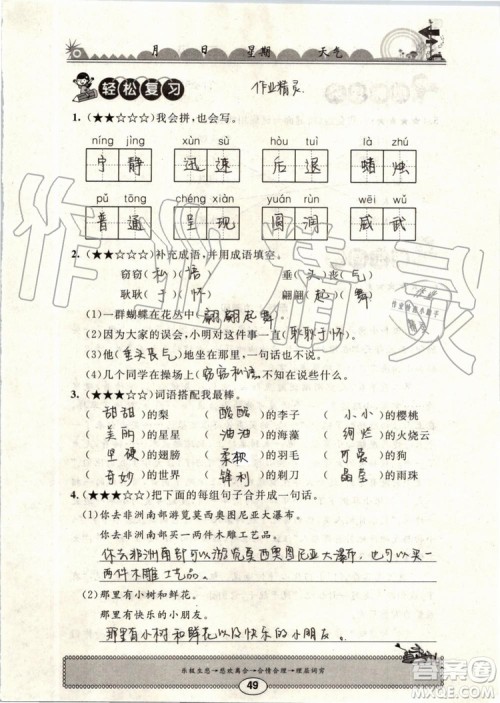 月 日 星期 天气
轻松复习 作业精灵
1. (★★☆☆☆)我会拼,也会写。
níng jìng xùn sù hòu tuì là zhú
宁静 迅速 后退 蜡烛
pǔ tōng chéng xiàn yuán rùn wēi wǔ
普通 呈现 圆润 威武
2. (★★☆☆☆)补充成语,并用成语填空。
窃窃(私)(语) 垂(头)丧(气)
耿耿(于)(怀) 翩翩(起)(舞)
(1)一群蝴蝶在花丛中(翩翩起舞)。
(2)因为大家的误会,小明对这件事一直(耿耿于怀)。
(3)他(垂头丧气)地坐在那里,一句话也不说。
(4)几个同学在操场上(窃窃私语),不知在说些什么。
3. (★★★☆☆)词语搭配我最棒。
(甜甜)的梨 (酸酸)的李子 (小小)的樱桃
(美丽)的星星 (油油)的海藻 (绚烂)的火烧云
(坚硬)的翅膀 (柔软)的羽毛 (可爱)的狗
(奇妙)的世界 (锋利)的剃刀 (晶莹)的雨珠
4. (★★★☆☆)把下面的每组句子合并成一句话。
(1)你去非洲南部游览莫西奥图尼亚大瀑布。
你去非洲南部买一两件木雕工艺品。
你去非洲南部可以游览莫西奥图尼亚大瀑布,也可以买一
两件木雕工艺品。
(2)那里有小树和鲜花。
那里有快乐的小朋友。
那里有小树和鲜花以及快乐的小朋友。
乐极生悲→悲欢离合→合情合理→理屈词穷
49
作业精灵
答案圈